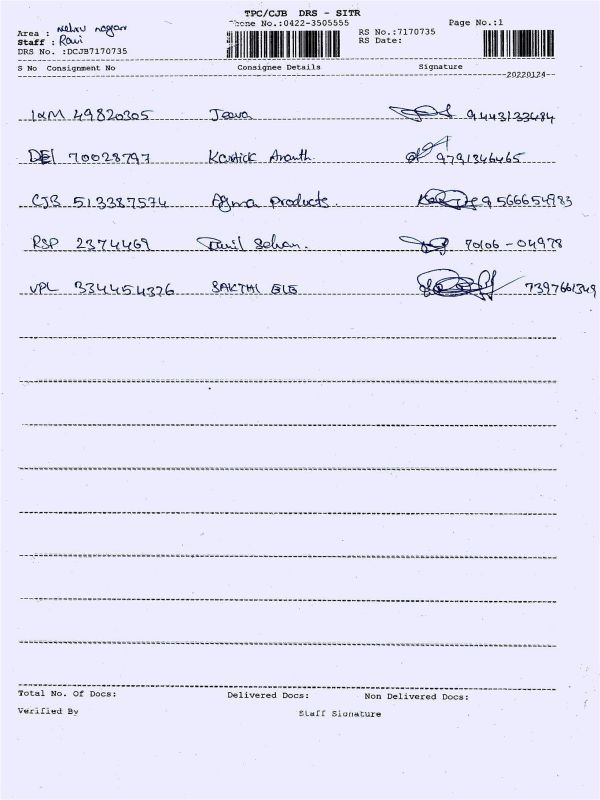 TPC/CJB DRS - SITR
Phone No.:0422-3505555 Page No.:1
Area : Nehru nagar RS No.:7170735
Staff : Ravi RS Date:
DRS No. :DCJB7170735
S No Consignment No Consignee Details Signature
20220124
IXM 49820305 Jeeva 9443133484
DEL 70028797 Kartick Ananth. 9791346465
CJB 513387574 Products. 9566654983
RSP 2374469 Selvan. 70106-04978
VPL 334454376 SAKTHI ELE 7397661349
Total No. Of Docs: Delivered Docs: Non Delivered Docs:
Verified By Staff Signature